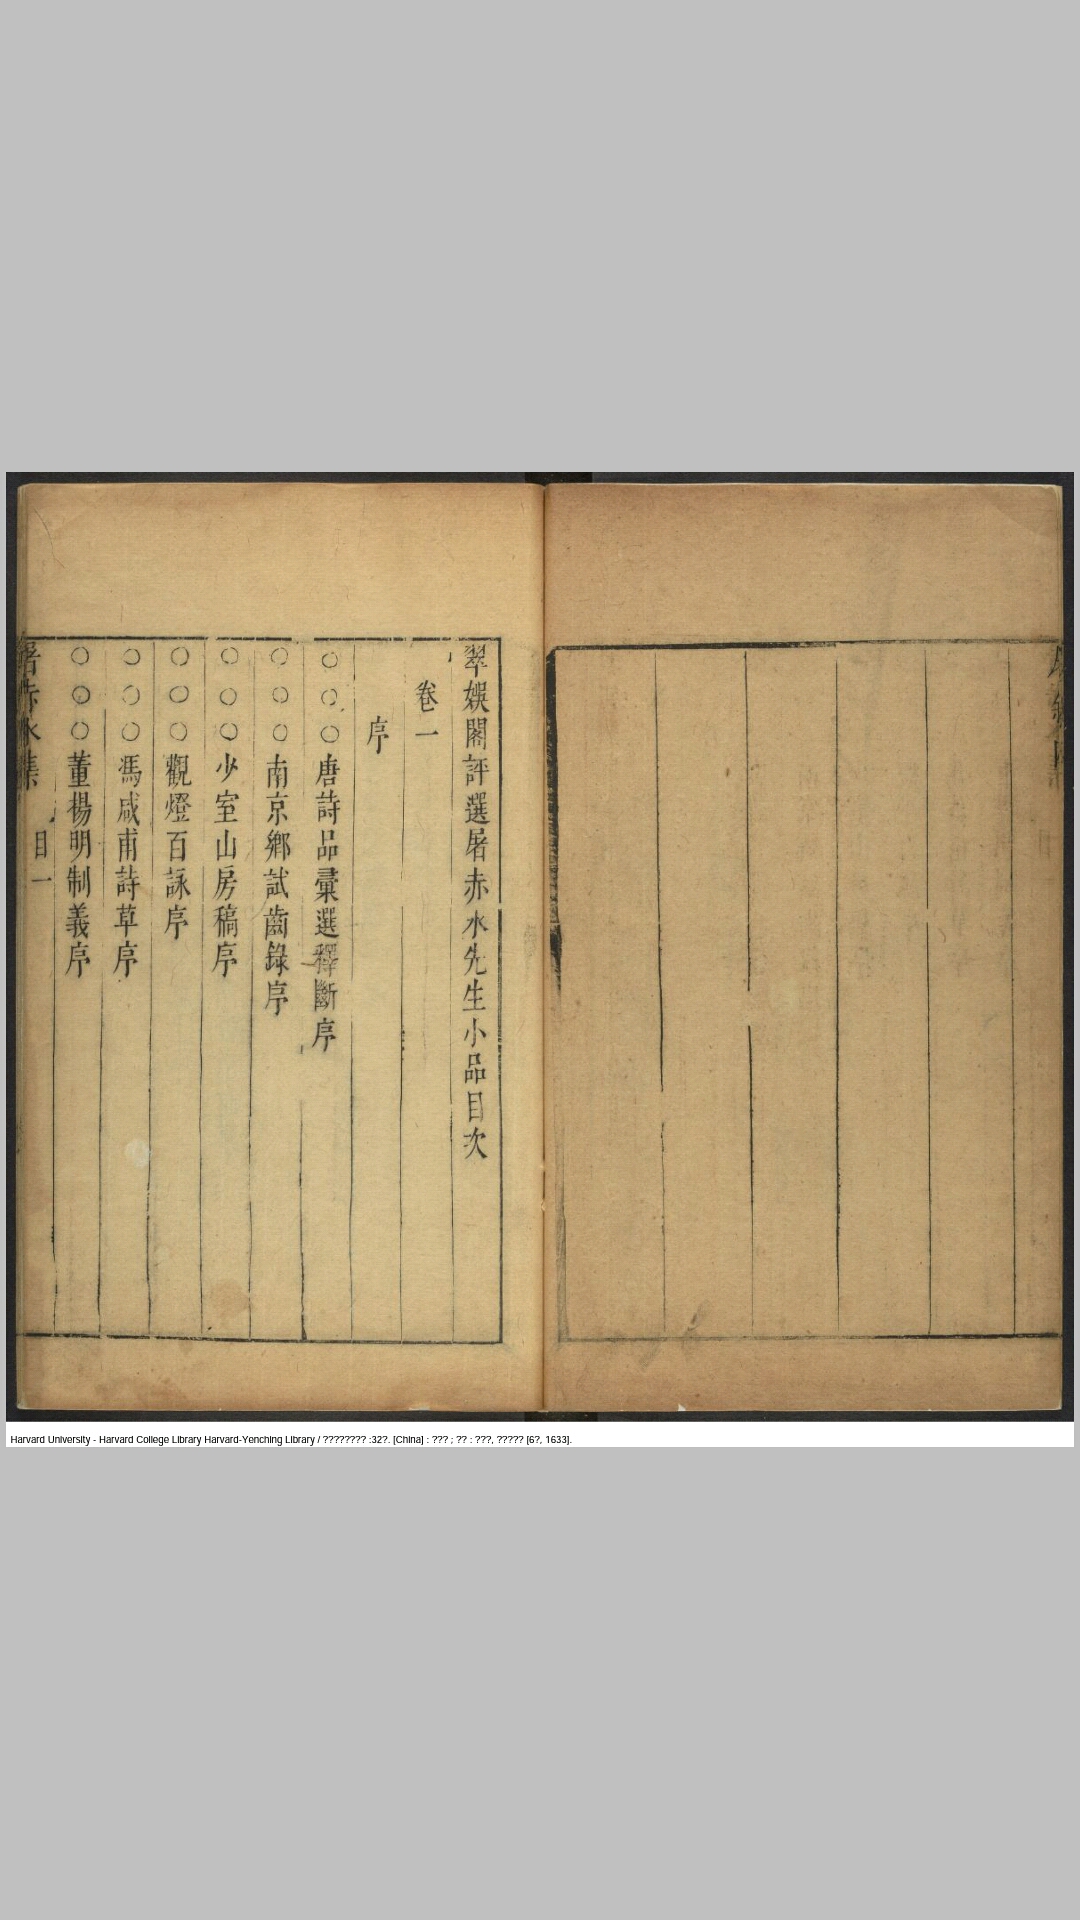 翠娛閣評選屠赤水先生小品目次
卷一
序
○○○唐詩品彙選釋斷序
○○○南京鄉試齒錄序
○○○少室山房稿序
○○○觀燈百詠序
○○○馮咸甫詩草序
○○○董揚明制義序
屠赤水集 目一
Harvard University - Harvard College Library Harvard-Yenching Library / ???????? :32?. [China] : ??? ; ?? : ???, ????? [6?, 1633].